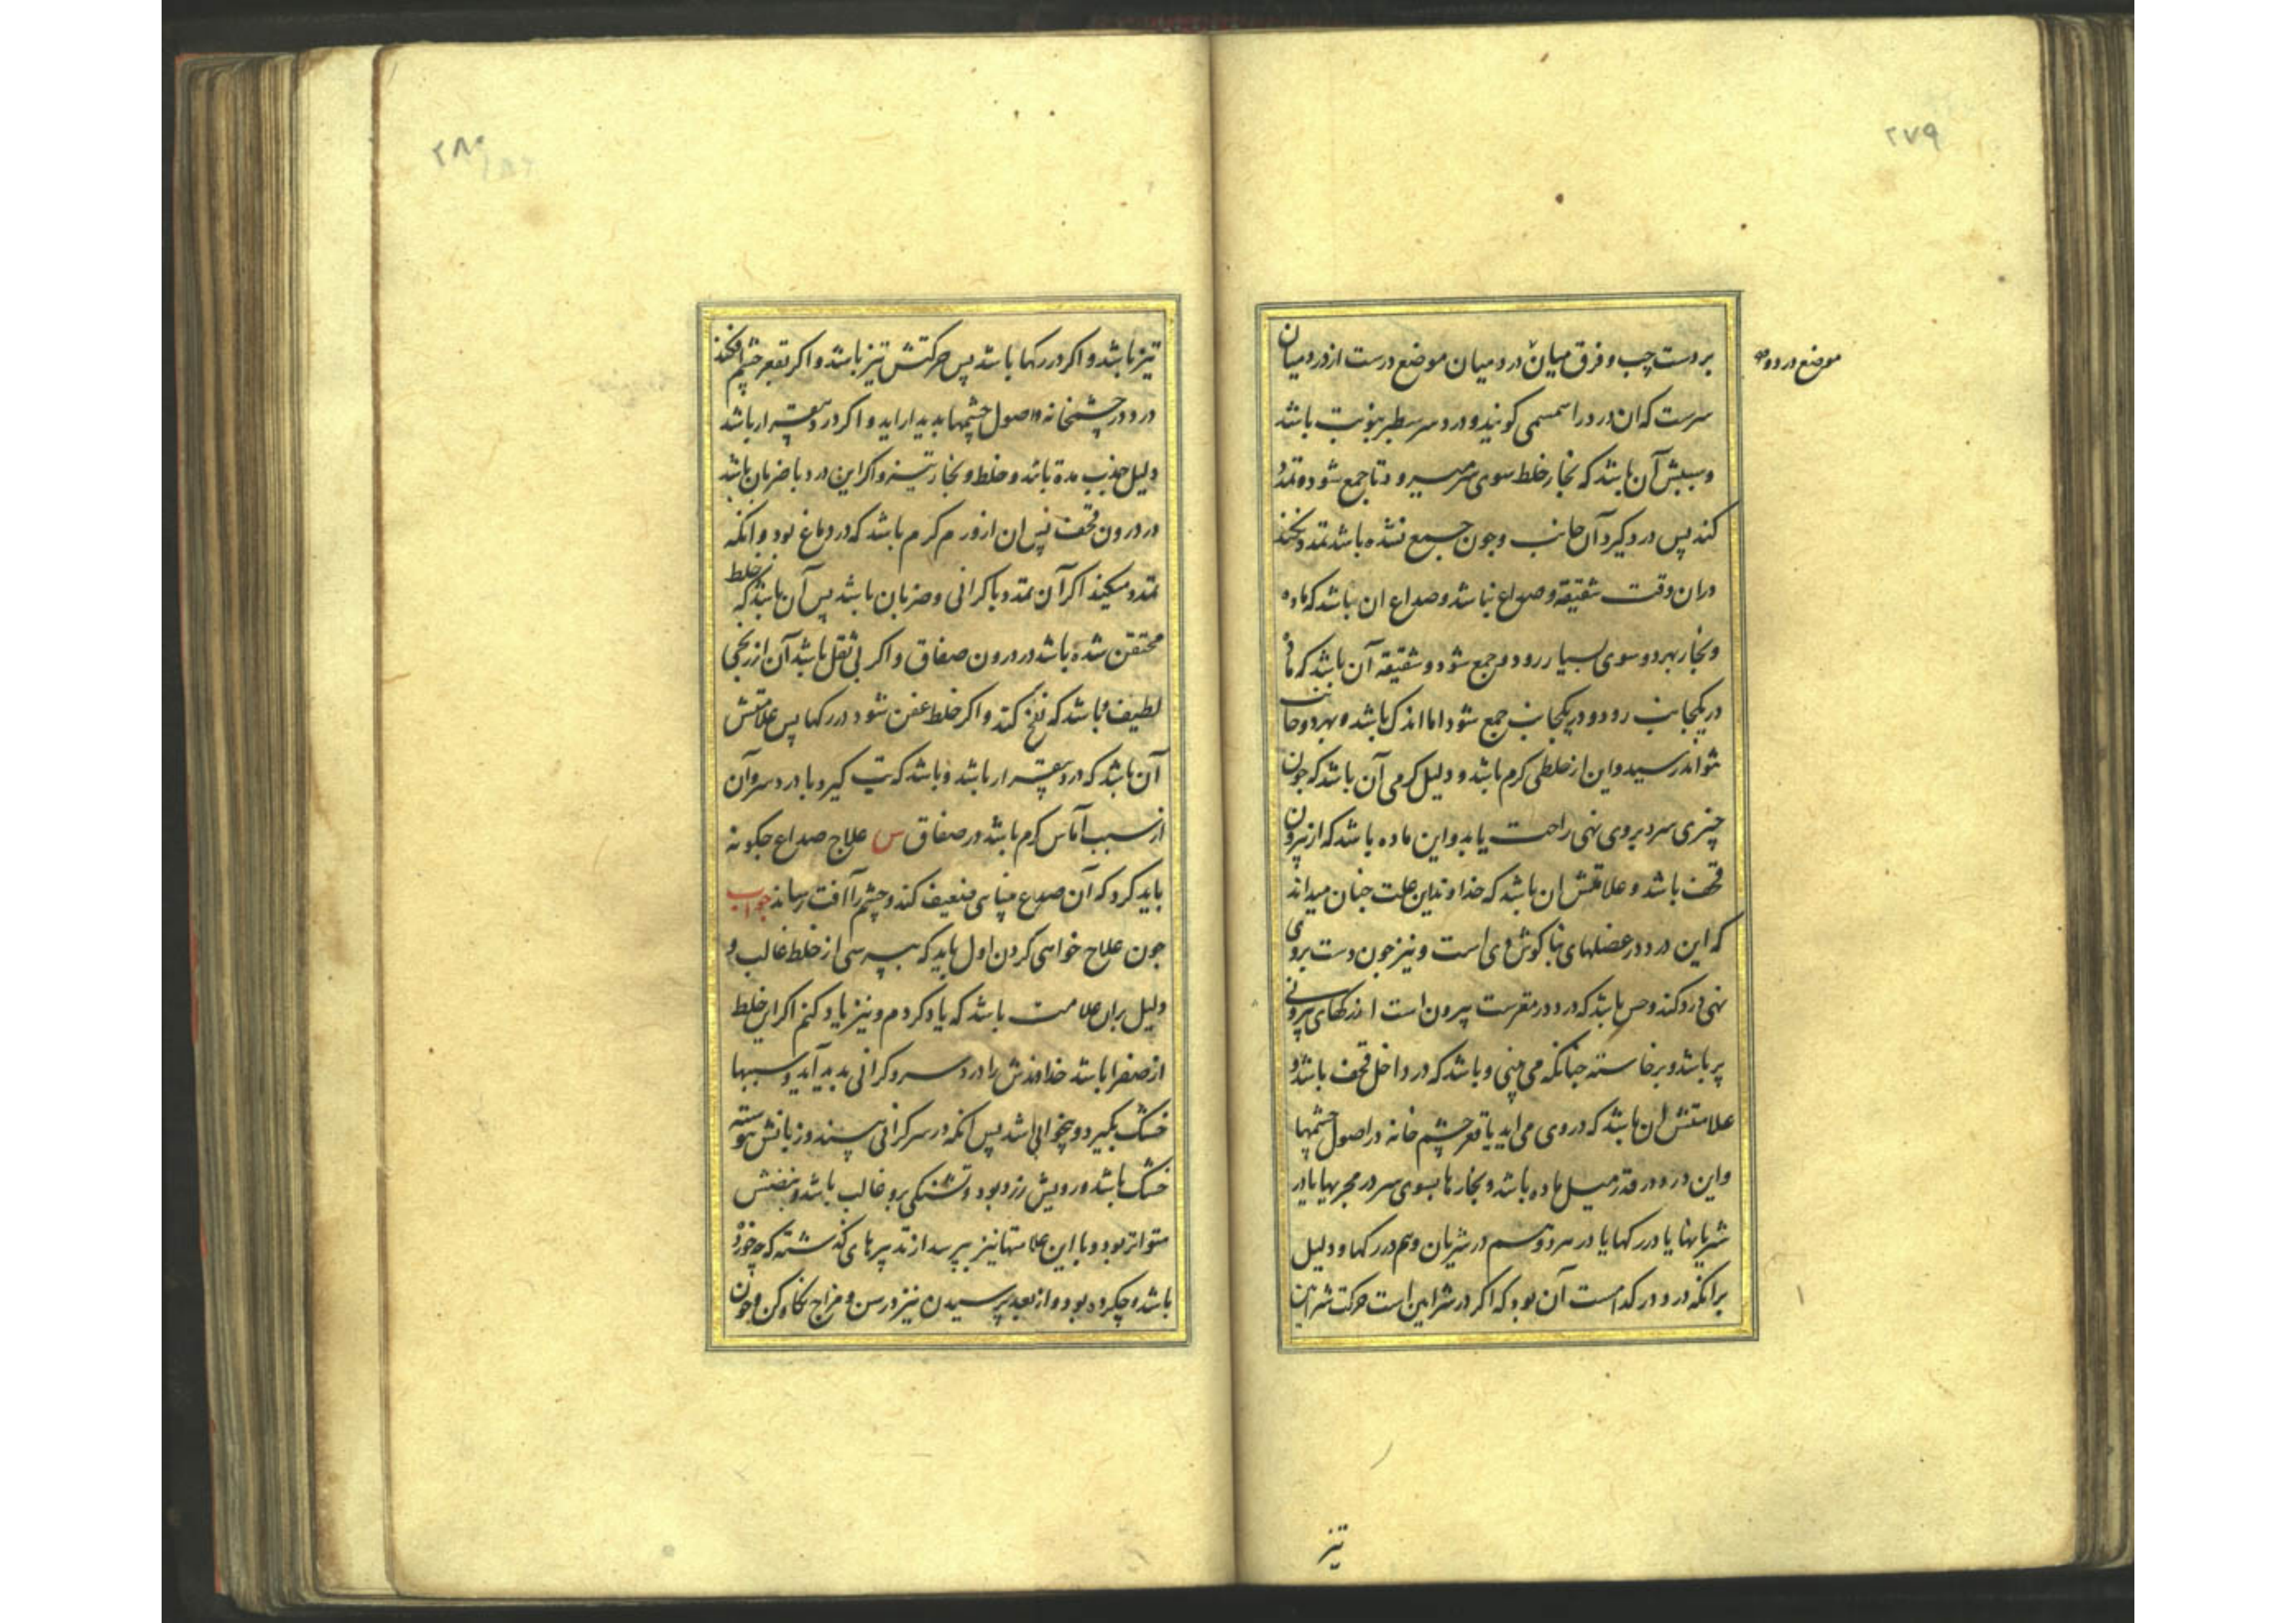 ۲۷۹
بر دست چپ و فرق میان درد میان موضع درست از درد میان
موضع درد و
سرست که ان درد را سمسمی کویند و درد سر سطبر بنوبت باشد
و سببش آن باشد که بخار خلط سوی سر میرود تا جمع شود و تمدد
کند پس درد کیرد آن جانب و جون جمع نشده باشد تمدد نکند
دران وقت شقیقه و صداع نباشد و صداع ان باشد که ماده
و بخار بهر دو سوی بسیار رود و جمع شود و شقیقه آن باشد که ماده
در یکجانب رود و در یکجانب جمع شود اما اندک باشد و بهر دو جانب
نتواند رسید و این از خلطی کرم باشد و دلیل کرمی آن باشد که جون
چیزی سرد بروی نهی راحت یابد و این ماده باشد که از بیرون
قحف باشد و علامتش ان باشد که خداوند این علت جنان میداند
که این درد در عضلهای بناکوش وی است و نیز جون دست بروی
نهی درد کند و حس باشد که درد در مقرست بیرون است از رکهای بیرونی
پر باشد و برخاسته جنانکه می بینی و باشد که در داخل قحف باشد و
علامتش ان باشد که در وی می اید یا قعر چشم خانه در اصول چشمها
و این درد در قدر میل ماده باشد و بخارها بسوی سر در مجریها یا در
شریانها یا در رکها یا در هر دو قسم در شریان و هم در رکها و دلیل
برانکه درد در کدامست آن بود که اکر در شرایین است حرکت شرایین
تیز
۲۸۰
تیز باشد و اکر در رکها باشد پس حرکتش تیز باشد و اکر بقعر چشم افکند
درد در چشمخانه و اصول چشمها بدیدار اید و اکر درد بیقرار باشد
دلیل جذب مده باشد و خلط و بخار تیز و اکر این درد با ضربان باشد
در درون قحف پس ان از ورم کرم باشد که در دماغ بود و انکه
تمدد میکند اکر آن تمدد با کرانی و ضربان باشد پس آن باشد که خلط
محتقن شده باشد در درون صفاق و اکر بی ثقل باشد آن از ریحی
لطیف باشد که نفخ کند و اکر خلط عفن شود در رکها پس علامتش
آن باشد که درد بیقرار باشد و باشد که تب کیرد با درد سر و آن
از سبب آماس کرم باشد در صفاق س علاج صداع جکونه
باید کرد که آن صداع بینایی ضعیف کند و چشم را آفت رساند جواب
جون علاج خواهی کردن اول باید که بپرسی از خلط غالب و
دلیل بران علامت باشد که یاد کردم و نیز یاد کنم اکر این خلط
از صفرا باشد خداوندش را درد سر و کرانی بدید آید و سببها
خشک بکیرد و بیخوابی باشد پس انکه در سر کرانی بیند و زبانش پیوسته
خشک باشد و رویش زرد بود و تشنکی برو غالب باشد و نبضش
متواتر بود و با این علامتها نیز بپرسد از تدبیرهای کذشته که چه خورده
باشد و چکرده بود و از بعد پرسیدن نیز در سن و مزاج نکاه کن و جون